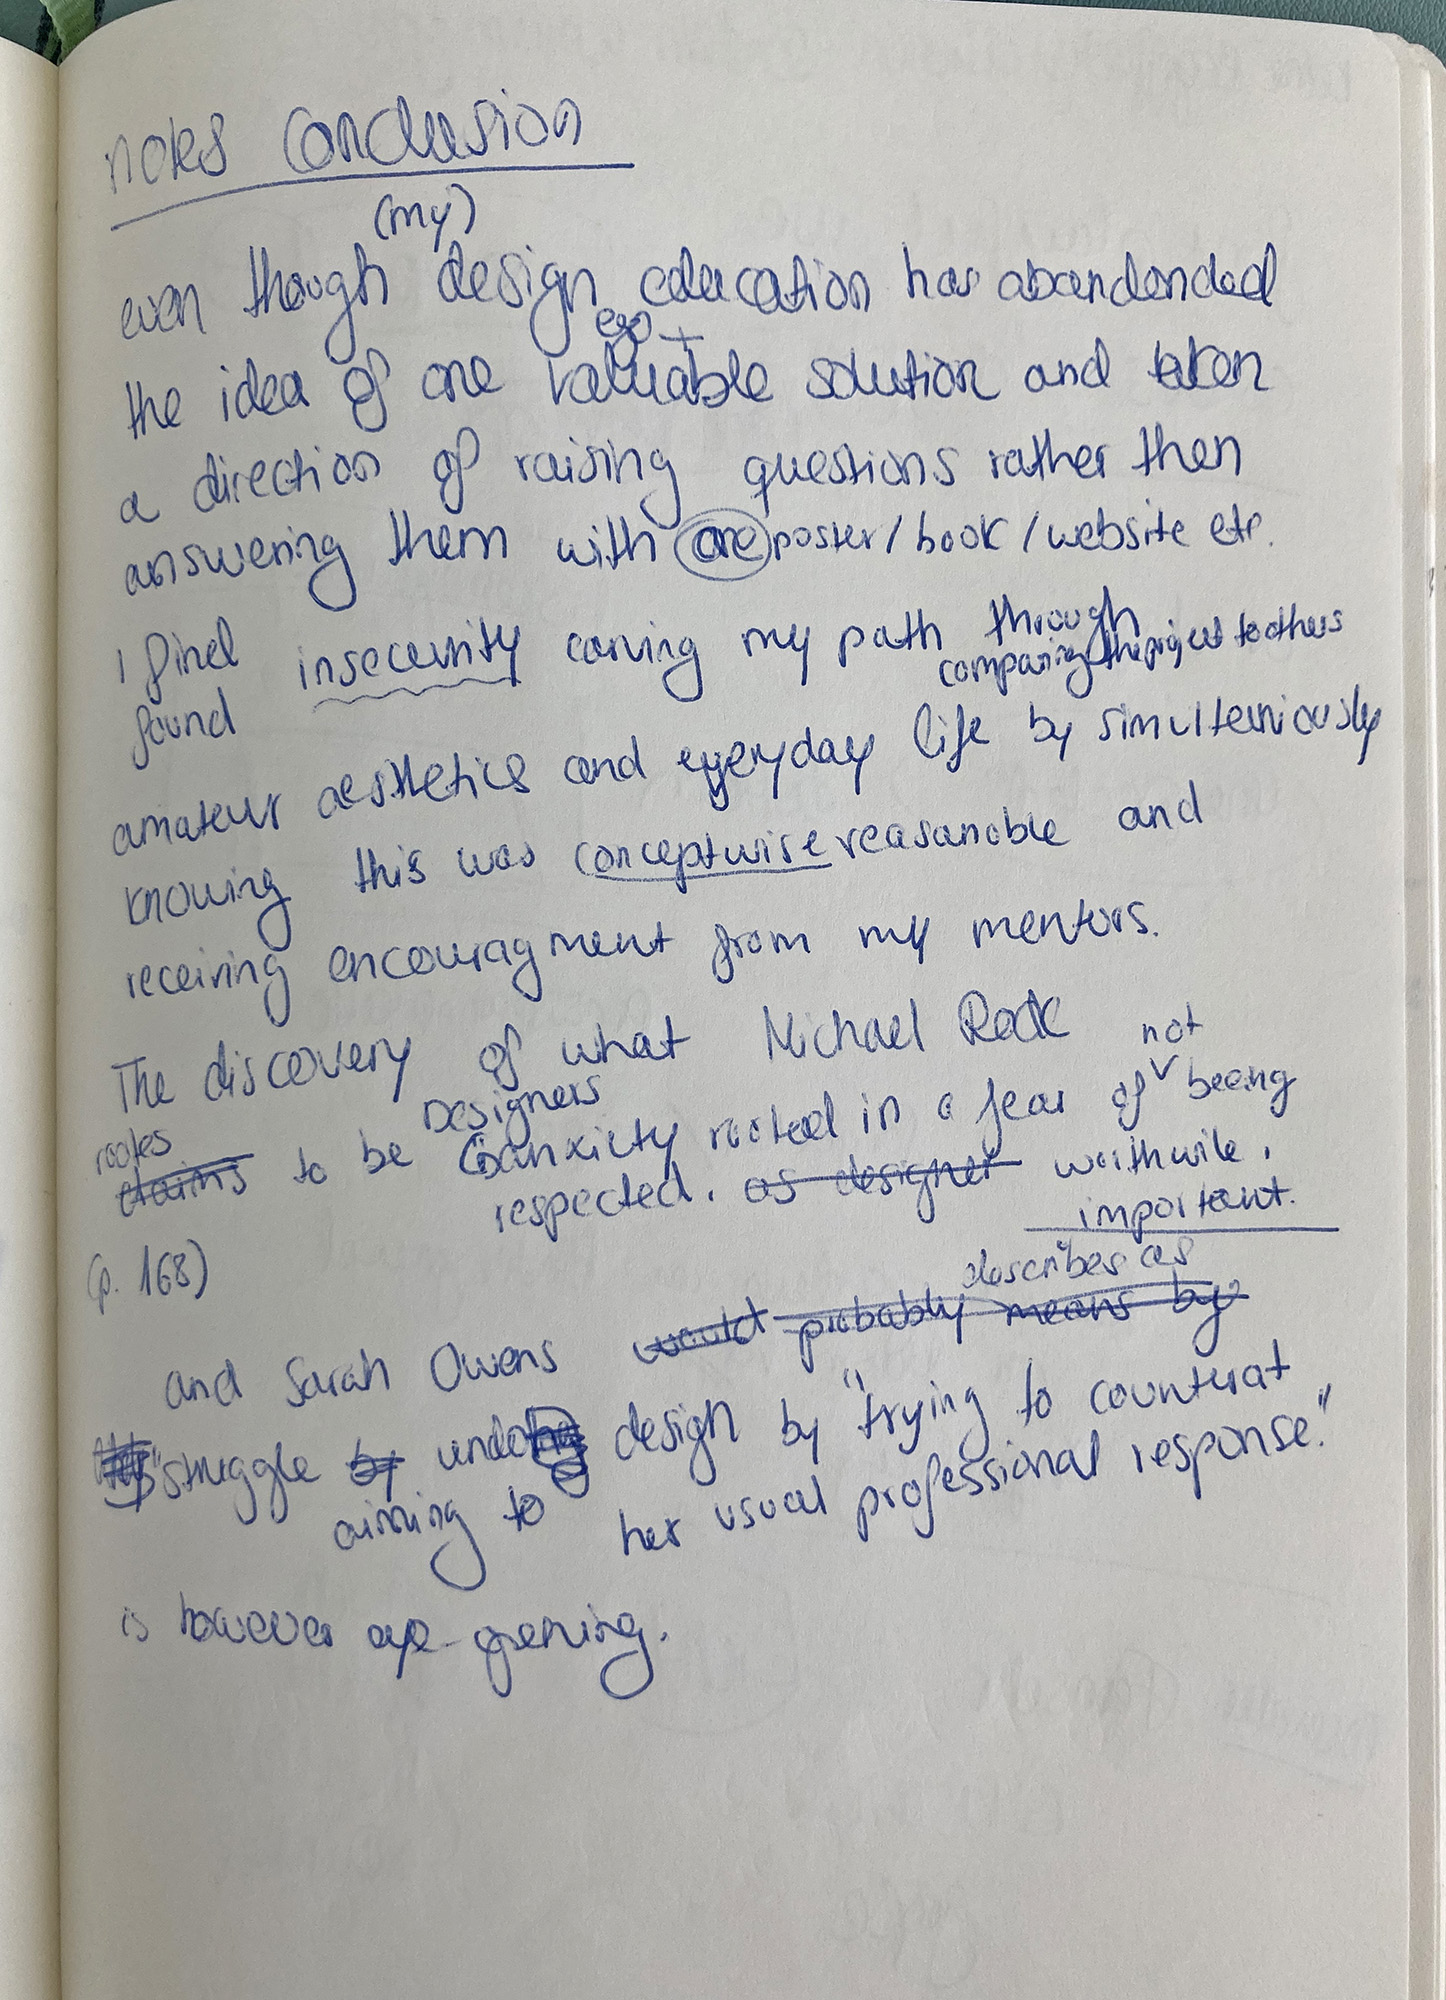 notes Conclusion
(my)
even though design education has abandonded
ego +
the idea of one valuable solution and taken
a direction of raising questions rather then
answering them with one poster / book / website etc.
I find insecurity carving my path through
found
comparing the project to others
amateur aesthetics and everyday life by simulteniously
knowing this was conceptwise reasanable and
receiving encouragment from my mentors.
The discovery of what Michael Rock not
notes Designers
claims to be anxiety rooted in a fear of being
respected. as designer worthwile,
important.
(p. 168)
describes as
and Sarah Owens would probably means by
"struggle by undoing design by "trying to counterat
aiming to her usual professional response."
is however eye-opening.